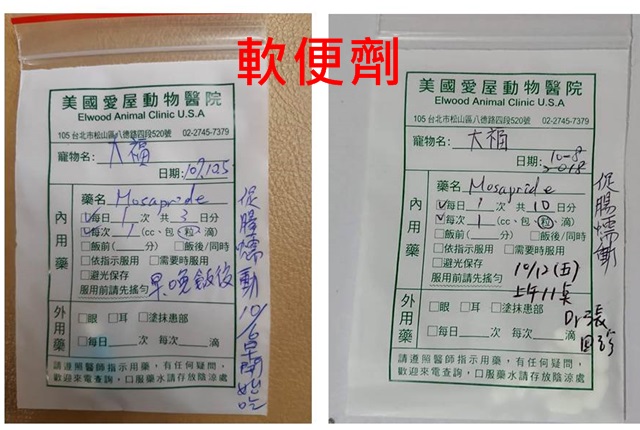 軟便劑
美國愛屋動物醫院
Elwood Animal Clinic U.S.A
105 台北市松山區八德路四段520號 02-2745-7379
寵物名: 大福
日期:
藥名 Mosapride
內用藥
每日 1 次 共 3 日分
每次 1 (cc、包 粒 滴)
飯前(____分) 飯後/同時
依指示服用 需要時服用
避光保存
服用前請先搖勻
早晚飯後
促腸蠕動
外用藥
眼 耳 塗抹患部
每日____次 每次____滴
請遵照醫師指示用藥,有任何疑問,
歡迎來電查詢,口服藥水請存放陰涼處
美國愛屋動物醫院
Elwood Animal Clinic U.S.A
105 台北市松山區八德路四段520號 02-2745-7379
寵物名: 大福
日期: 10-8
2018
藥名 Mosapride
內用藥
每日 1 次 共 10 日分
每次 1 (cc、包、粒 滴)
飯前(____分) 飯後/同時
依指示服用 需要時服用
避光保存
服用前請先搖勻
10/12 (五)
上午11點
Dr.張
回診
促腸蠕動
外用藥
眼 耳 塗抹患部
每日____次 每次____滴
請遵照醫師指示用藥,有任何疑問,
歡迎來電查詢,口服藥水請存放陰涼處